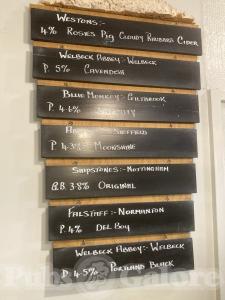 WESTONS:-
4% ROSIES PIG CLOUDY RHUBARB CIDER
WELBECK ABBEY:- WELBECK
P. 5% CAVENDISH
BLUE MONKEY:- GILTBROOK
P 4.6%
SHEFFIELD
P 4.3% MOONSHINE
SHIPSTONES:- NOTTINGHAM
Q.B. 3.8% ORIGINAL
FALSTAFF:- NORMANTON
P. 4% DEL BOY
WELBECK ABBEY:- WELBECK
P. 4.5% PORTLAND BLACK